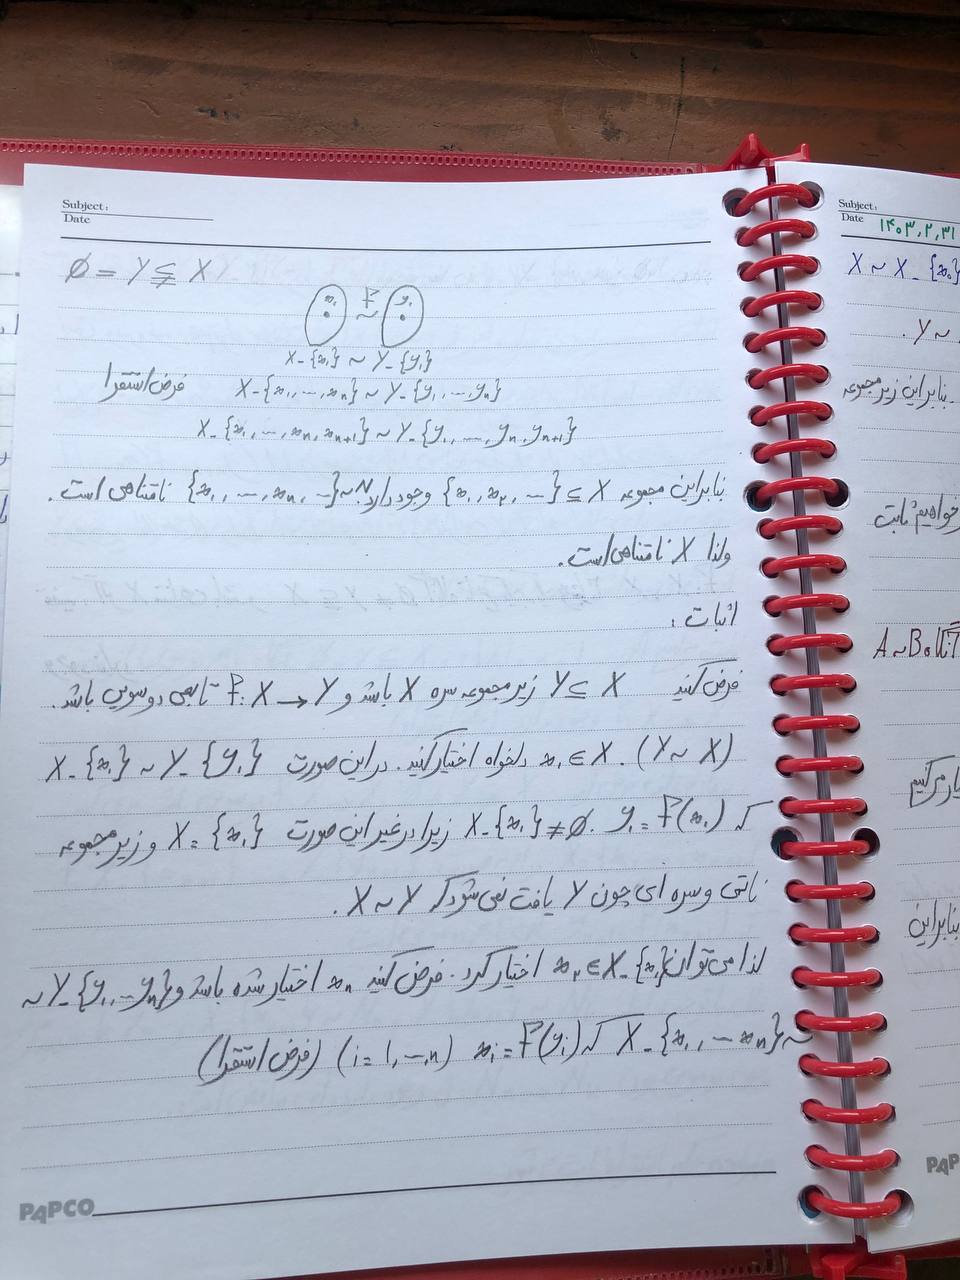 Subject:
Date
∅ = Y ⊊ X
x₁ f y₁
~
X-{x₁} ~ Y-{y₁}
فرض استقرا X-{x₁, ..., xₙ} ~ Y-{y₁, ..., yₙ}
X-{x₁, ..., xₙ, xₙ₊₁} ~ Y-{y₁, ..., yₙ, yₙ₊₁}
بنابراین مجموعه {x₁, x₂, ...} ⊆ X وجود دارد N ~ {x₁, ..., xₙ, ...} نامتناهی است.
ولذا X نامتناهی است.
اثبات:
فرض کنید Y ⊆ X زیرمجموعه سره X باشد و f: X → Y تابعی دوسویی باشد.
(Y ~ X). x₁ ∈ X دلخواه اختیار کنید. در این صورت X-{x₁} ~ Y-{y₁}
که y₁ = f(x₁). X-{x₁} ≠ ∅ زیرا در غیر این صورت X = {x₁} و زیرمجموعه
ناتهی و سره ای چون Y یافت نمی شود که X ~ Y.
لذا می توان x₂ ∈ X-{x₁} اختیار کرد. فرض کنید xₙ اختیار شده باشد و Y-{y₁, ... yₙ} ~
~ X-{x₁, ... xₙ} که xᵢ = f(yᵢ) (i = 1, ..., n) (فرض استقرا)
PAPCO
Subject:
Date ۱۴۰۳,۲,۳۱
X ~ X-{x₀}
~ Y.
بنابراین زیرمجموعه
خواهیم ثابت
آنگاه A ~ B
بنابراین
PAP